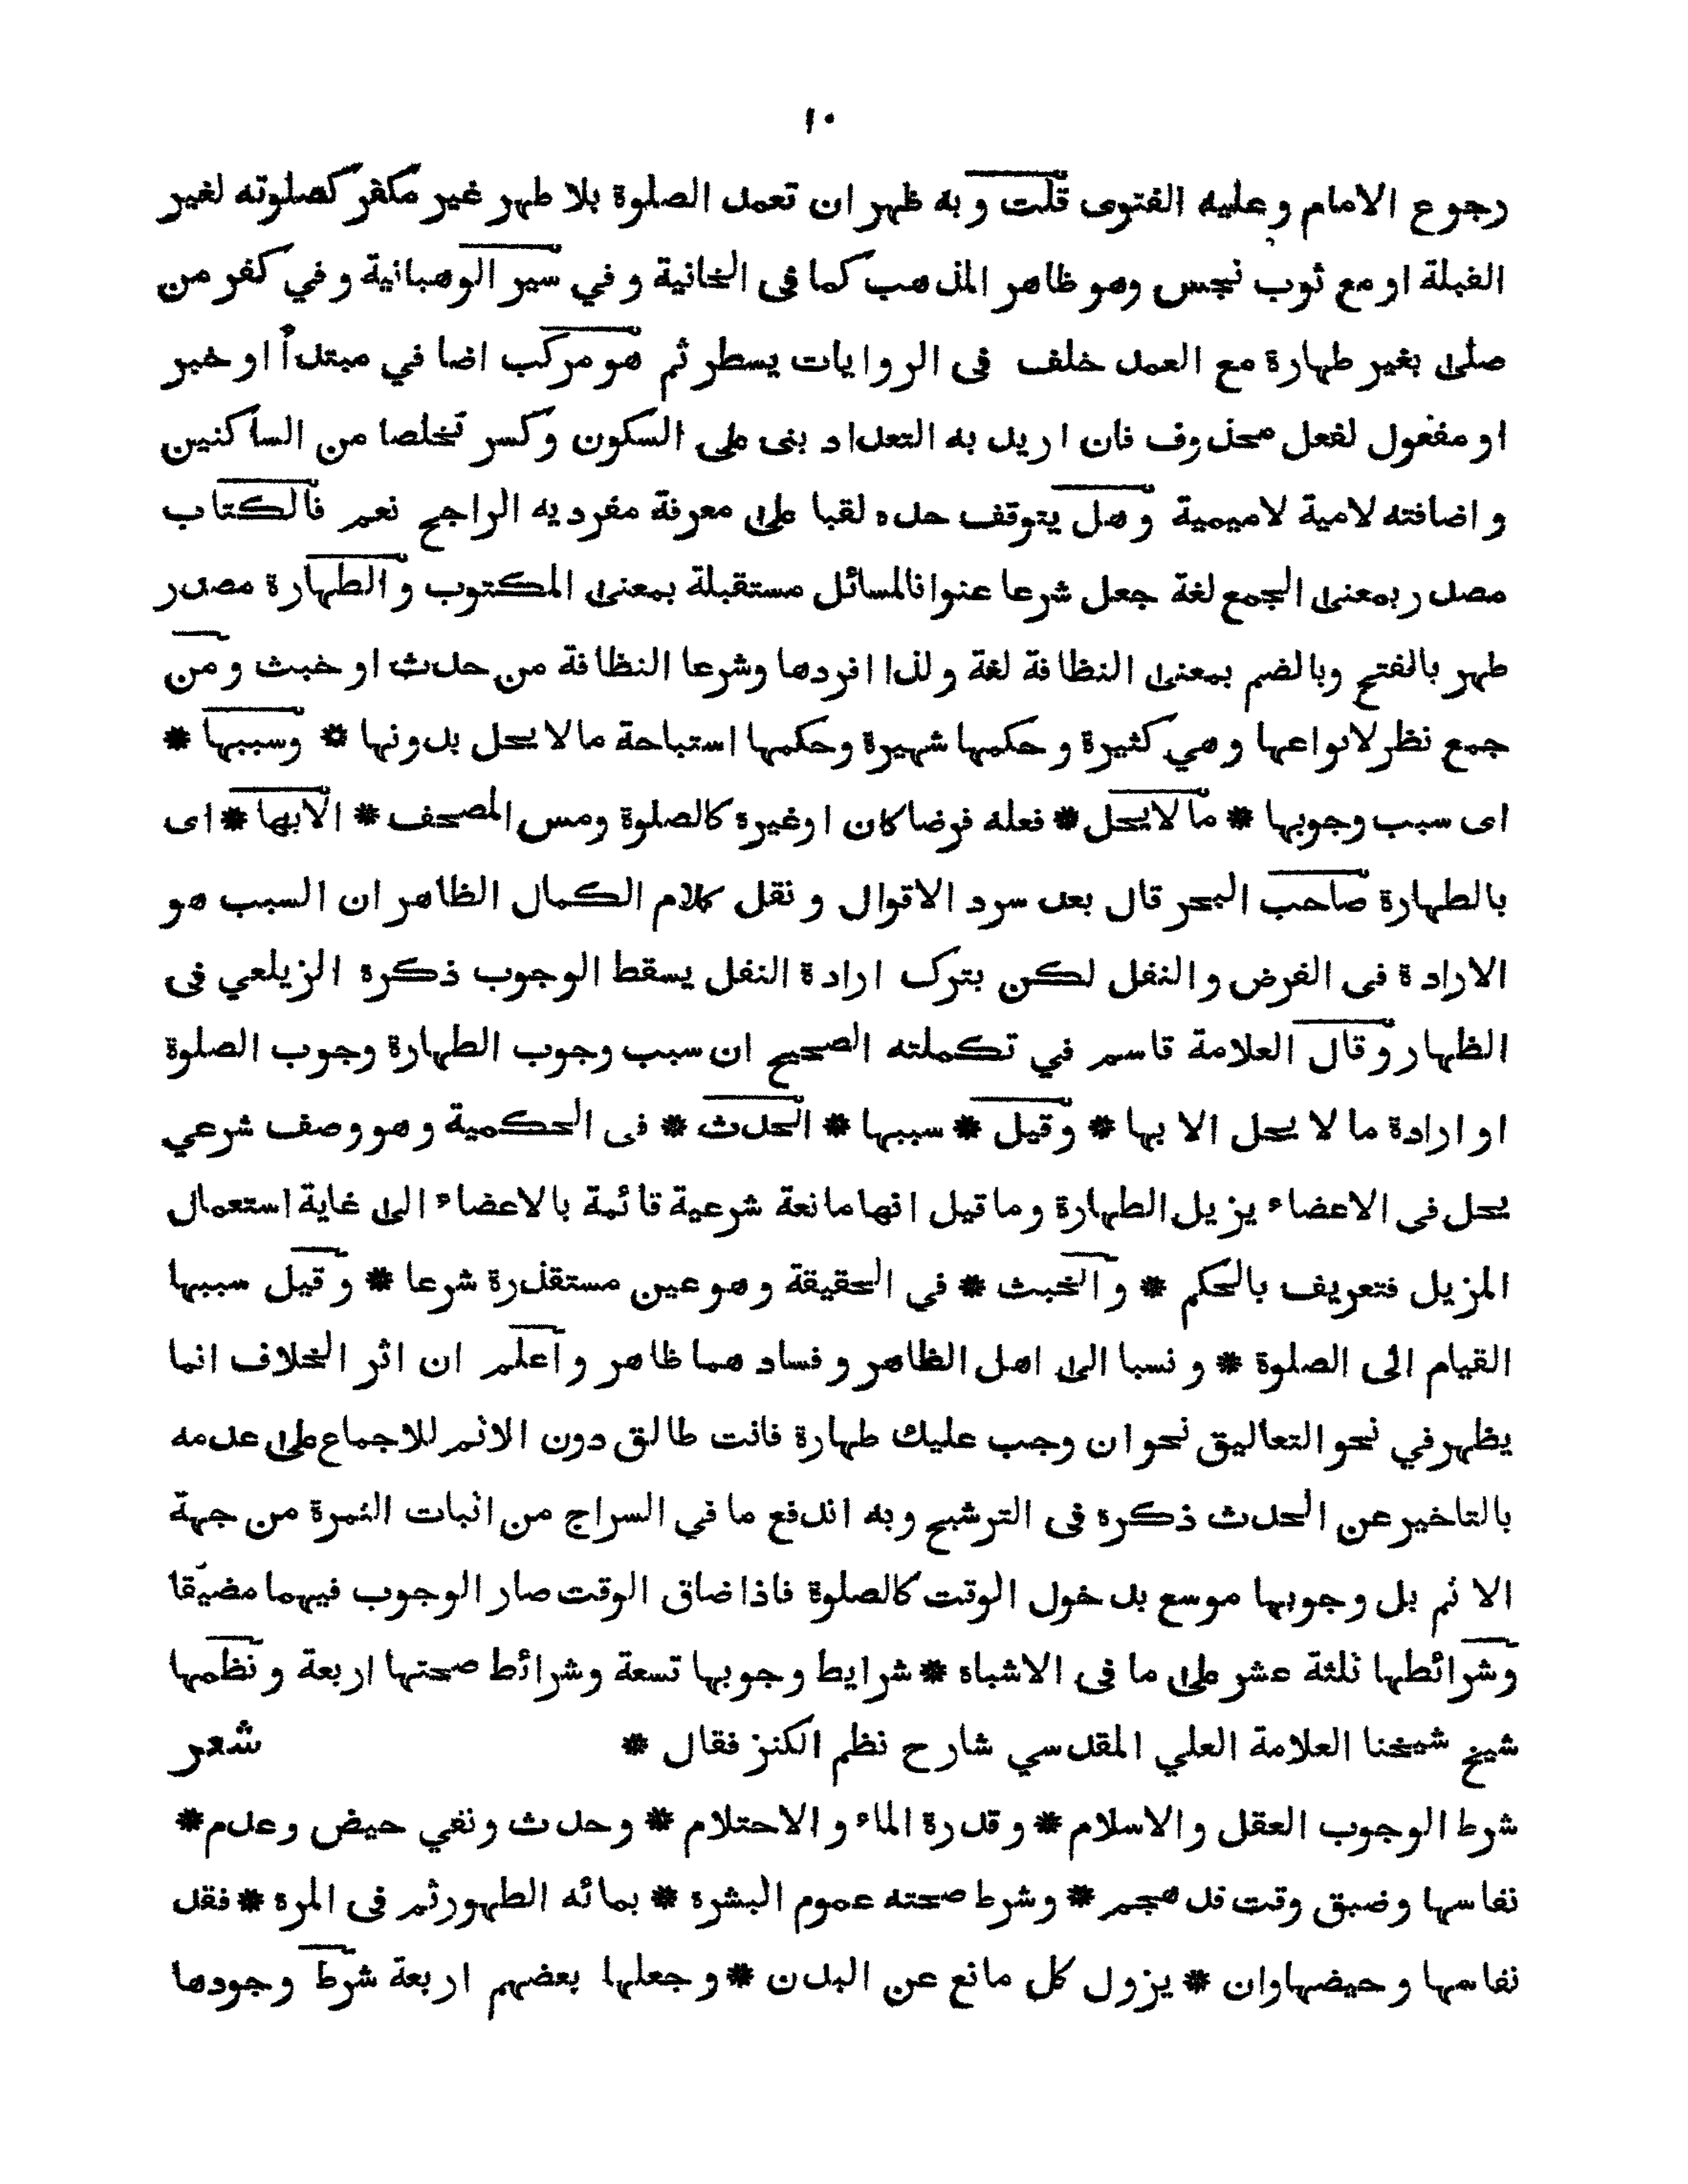 ١٠
رجوع الامام وعليه الفتوى قلت وبه ظهر ان تعمد الصلوة بلا طهر غير مكفر كصلوته لغير
القبلة او مع ثوب نجس وهو ظاهر المذهب كما فى الخانية وفي سير الوهبانية وفي كفر من
صلى بغير طهارة مع العمد خلف فى الروايات يسطر ثم هو مركب اضافي مبتدأ او خبر
او مفعول لفعل محذوف فان اريد به التعداد بنى على السكون وكسر تخلصا من الساكنين
واضافته لامية لاميمية وهل يتوقف حده لقبا على معرفة مفرديه الراجح نعم فالكتاب
مصدر بمعنى الجمع لغة جعل شرعا عنوانالمسائل مستقبلة بمعنى المكتوب والطهارة مصدر
طهر بالفتح وبالضم بمعنى النظافة لغة ولذا افردها وشرعا النظافة من حدث او خبث ومن
جمع نظر لانواعها وهي كثيرة وحكمها شهيرة وحكمها استباحة مالا يحل بدونها * وسببها *
اى سبب وجوبها * ما لا يحل * فعله فرضا كان اوغيره كالصلوة ومس المصحف * الابها * اى
بالطهارة صاحب البحر قال بعد سرد الاقوال ونقل كلام الكمال الظاهر ان السبب هو
الارادة فى الفرض والنفل لكن بترك ارادة النفل يسقط الوجوب ذكره الزيلعي فى
الظهار وقال العلامة قاسم في تكملته الصحيح ان سبب وجوب الطهارة وجوب الصلوة
او ارادة ما لا يحل الا بها * وقيل * سببها * الحدث * فى الحكمية وهو وصف شرعي
يحل فى الاعضاء يزيل الطهارة وما قيل انها مانعة شرعية قائمة بالاعضاء الى غاية استعمال
المزيل فتعريف بالحكم * والخبث * في الحقيقة وهو عين مستقذرة شرعا * وقيل سببها
القيام الى الصلوة * ونسبا الى اهل الظاهر وفسادهما ظاهر واعلم ان اثر الخلاف انما
يظهر في نحو التعاليق نحو ان وجب عليك طهارة فانت طالق دون الاثم للاجماع على عدمه
بالتاخير عن الحدث ذكره فى الترشيح وبه اندفع ما في السراج من اثبات الثمرة من جهة
الاثم بل وجوبها موسع بدخول الوقت كالصلوة فاذا ضاق الوقت صار الوجوب فيهما مضيّقا
وشرائطها ثلثة عشر على ما فى الاشباه * شرايط وجوبها تسعة وشرائط صحتها اربعة ونظمها
شيخ شيخنا العلامة العلي المقدسي شارح نظم الكنز فقال * شعر
شرط الوجوب العقل والاسلام * وقدرة الماء والاحتلام * وحدث ونفي حيض وعدم *
نفاسها وضيق وقت قد هجم * وشرط صحته عموم البشره * بمائه الطهور ثم فى المره * فقد
نفاسها وحيضها وان * يزول كل مانع عن البدن * وجعلها بعضهم اربعة شرط وجودها